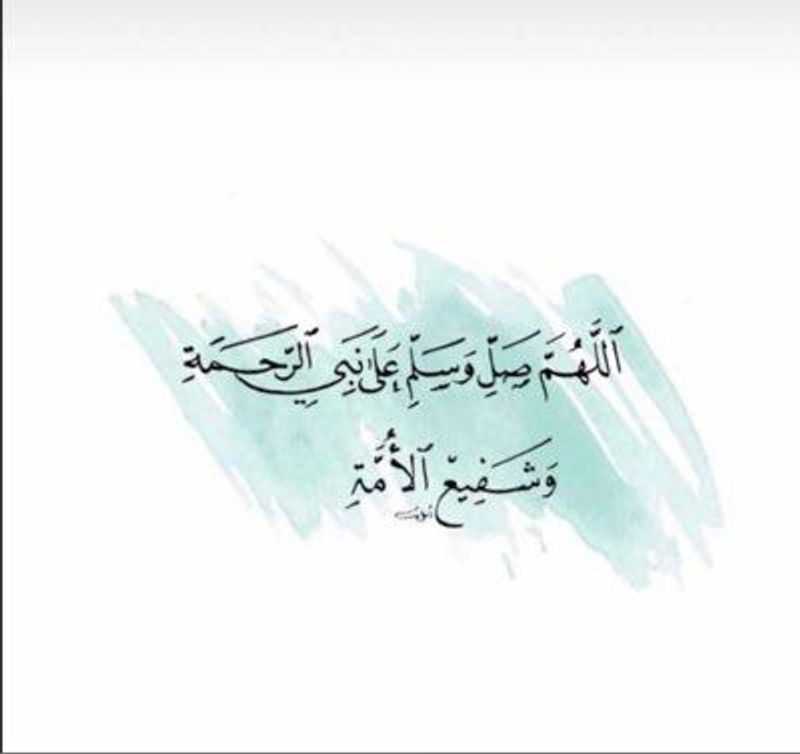 ٱللَّهُمَّ صَلِّ وَسَلِّمْ عَلَىٰ نَبِيِ ٱلرَّحْمَةِ
وَشَفِيعْ ٱلأُمَّةِ